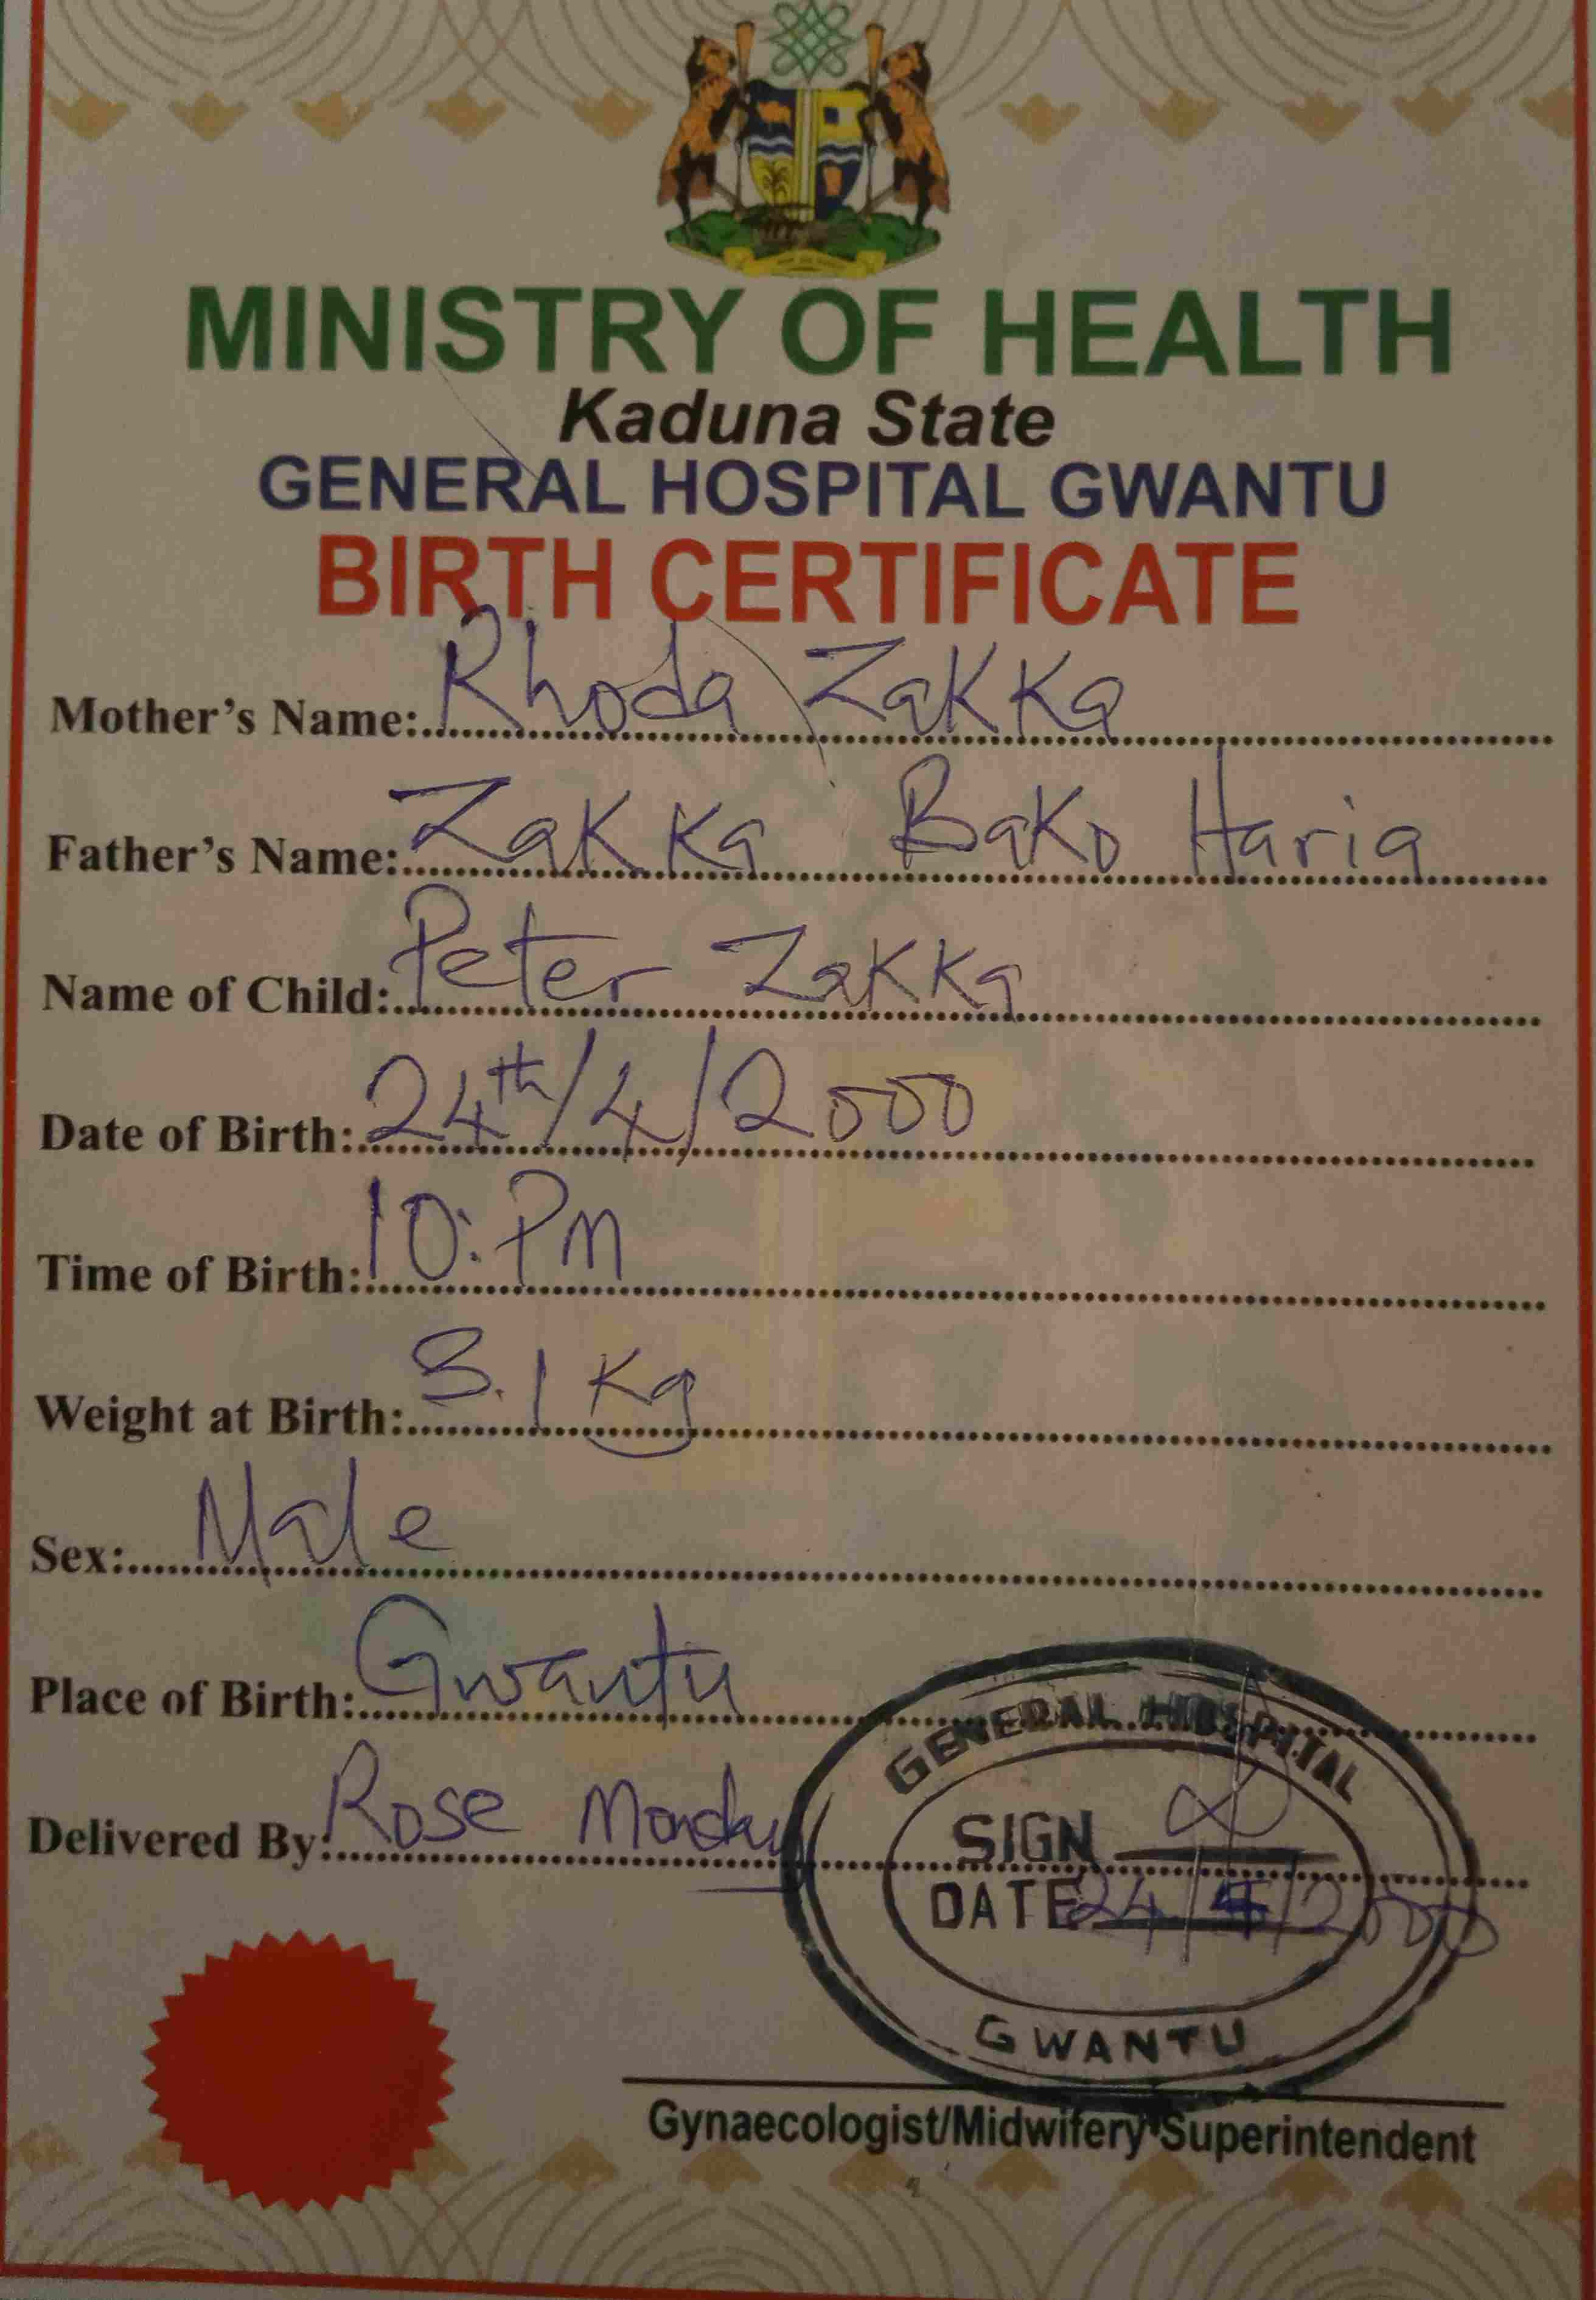 MINISTRY OF HEALTH
Kaduna State
GENERAL HOSPITAL GWANTU
BIRTH CERTIFICATE
Mother's Name: Rhoda Zakka
Father's Name: Zakka Bako Haria
Name of Child: Peter Zakka
Date of Birth: 24th/4/2000
Time of Birth: 10:PM
Weight at Birth: 3.1 Kg
Sex: Male
Place of Birth: Gwantu
Delivered By: Rose Monday
GENERAL HOSPITAL
SIGN
DATE 24/4/2000
GWANTU
Gynaecologist/Midwifery Superintendent